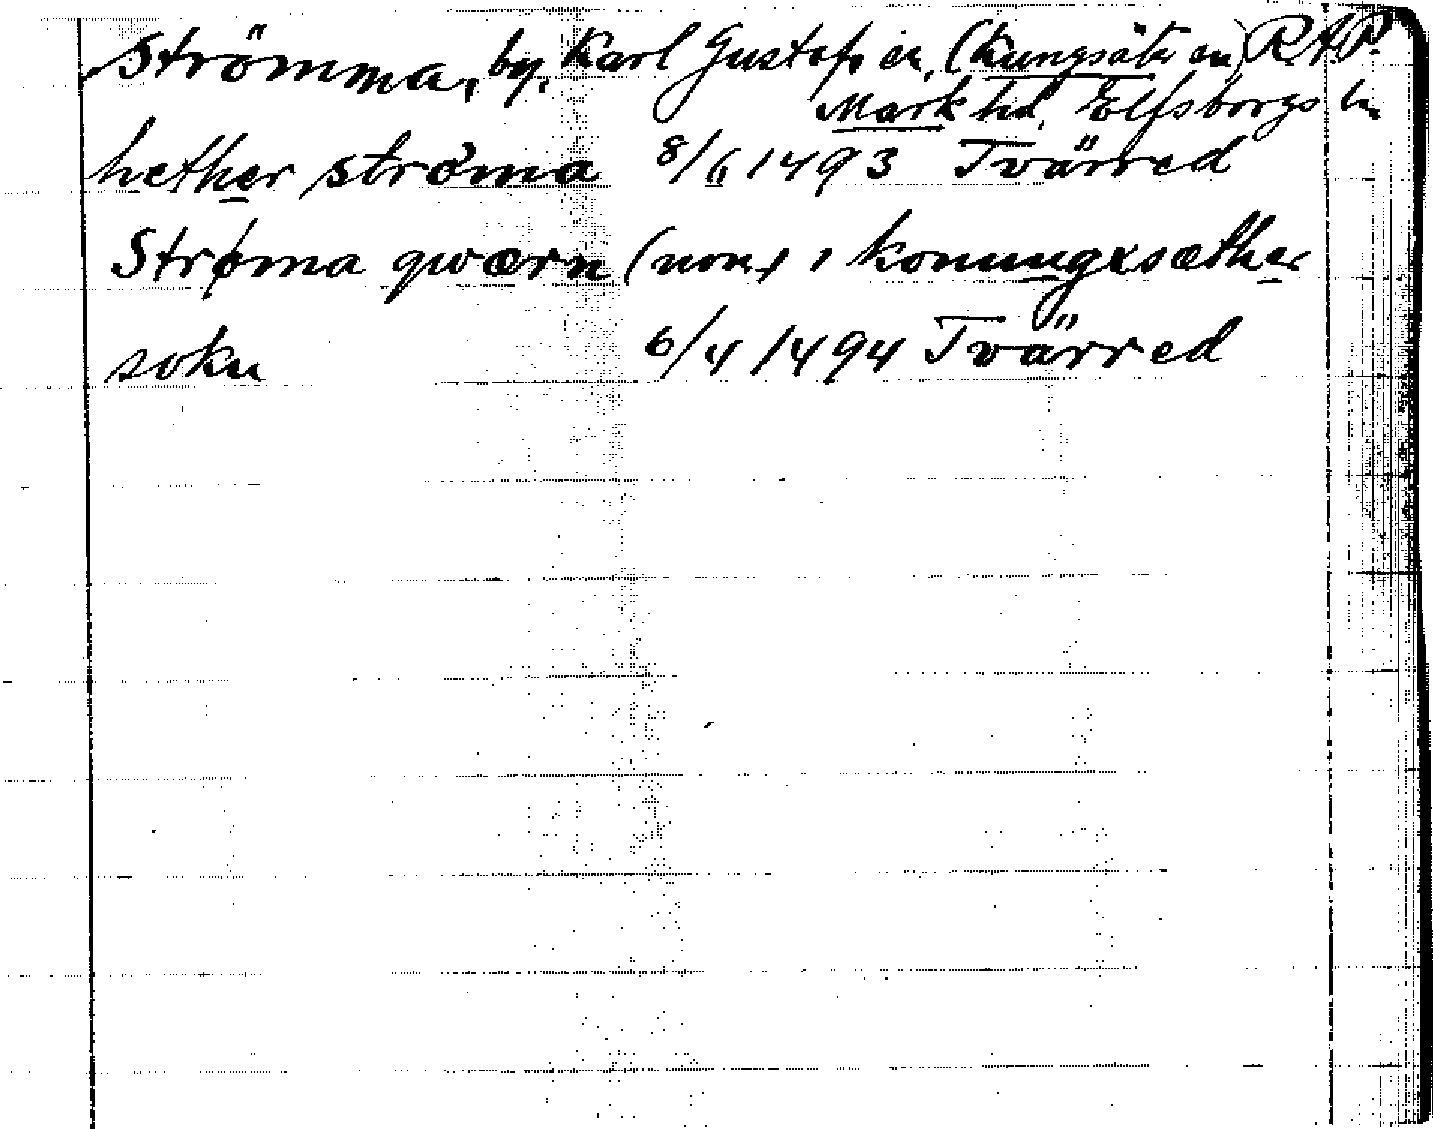 Strömma, by, Karl Gustafs sn, (Kungsäters sn) RAP.
Marks hd, Elfsborgs ln
hether ströma 8/6 1493 Tvärred
Strøma qwærn (nom.) i konungxsæther
sokn 6/4 1494 Tvärred